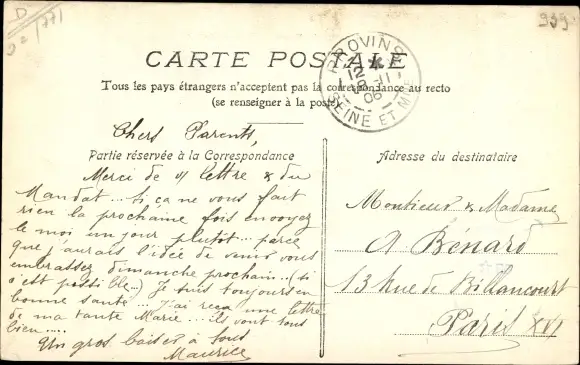 D
939
CARTE POSTALE
PROVINS
SEINE ET MNE
Tous les pays étrangers n'acceptent pas la correspondance au recto
(se renseigner à la poste)
Chers Parents,
Partie réservée à la Correspondance
Merci de v/ lettre & du
Mandat... si ça ne vous fait
rien la prochaine fois envoyez
le moi un jour plutôt... parce
que j'aurais l'idée de venir vous
embrasser dimanche prochain... (si
c'est possible...) Je suis toujours en
bonne santé. J'ai reçu une lettre
de ma tante Marie... ils vont tous
bien.....
Un gros baiser à tous
Maurice
Adresse du destinataire
Monsieur & Madame
A Bénard
13 Rue de Billancourt
Paris XVI